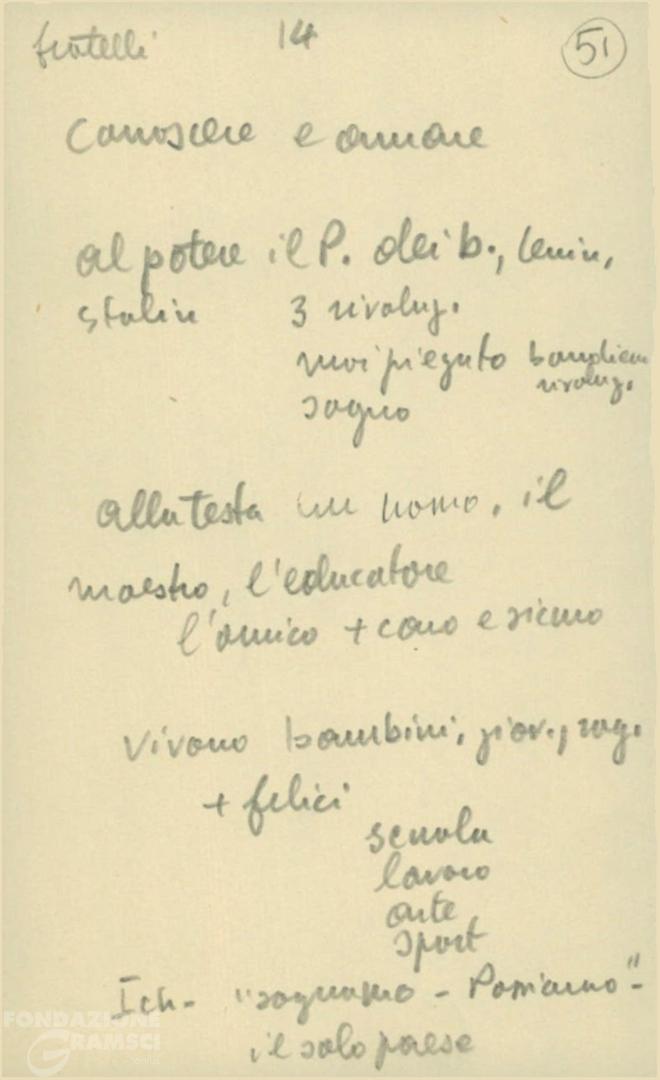 fratelli 14 51
Conoscere e amare
al potere il P. dei b., Lenin,
Stalin 3 rivoluz.
mai piegato bandiera
rivoluz.
sogno
alla testa un uomo, il
maestro, l'educatore
l'amico + caro e sicuro
Vivono bambini, giov., rag.
+ felici
scuola
lavoro
arte
sport
"sognamo -
il solo paese
FONDAZIONE
GRAMSCI